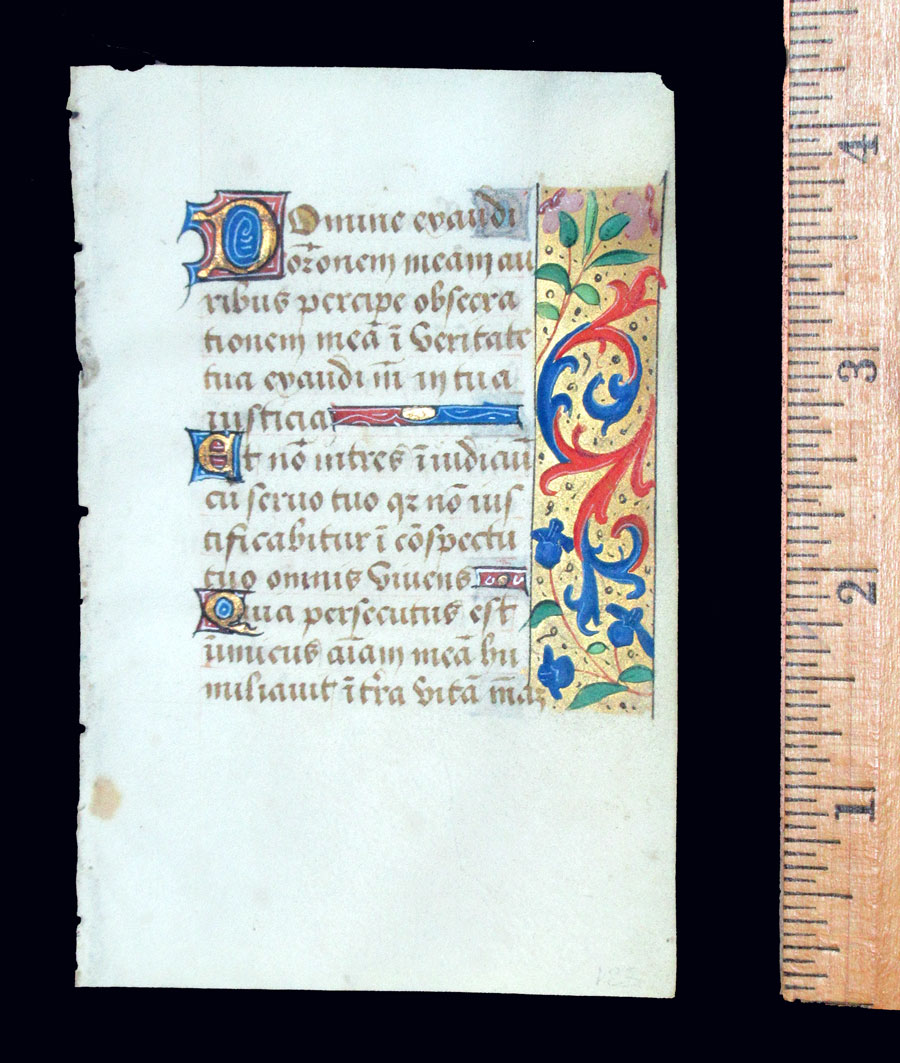 Domine exaudi
or̄onem meam au
ribus percipe obsecra
tionem meā ī veritate
tua exaudi m̄ in tua
iusticia
Et nō intres ī iudiciū
cū servo tuo qz nō ius
tificabitur ī cōspectu
tuo omnis vivens
Quia persecutus est
īimicus aīam meā hu
miliavit ī tr̄a vitā mā
4
3
2
1